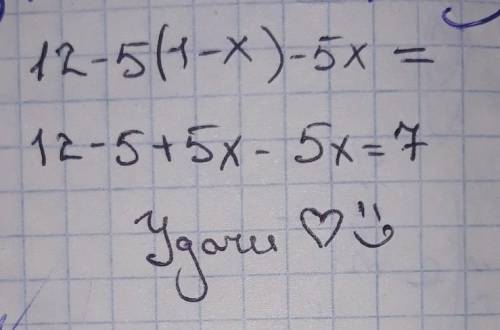 12-5(1-x)-5x=
12-5+5x-5x=7
Удачи ♡